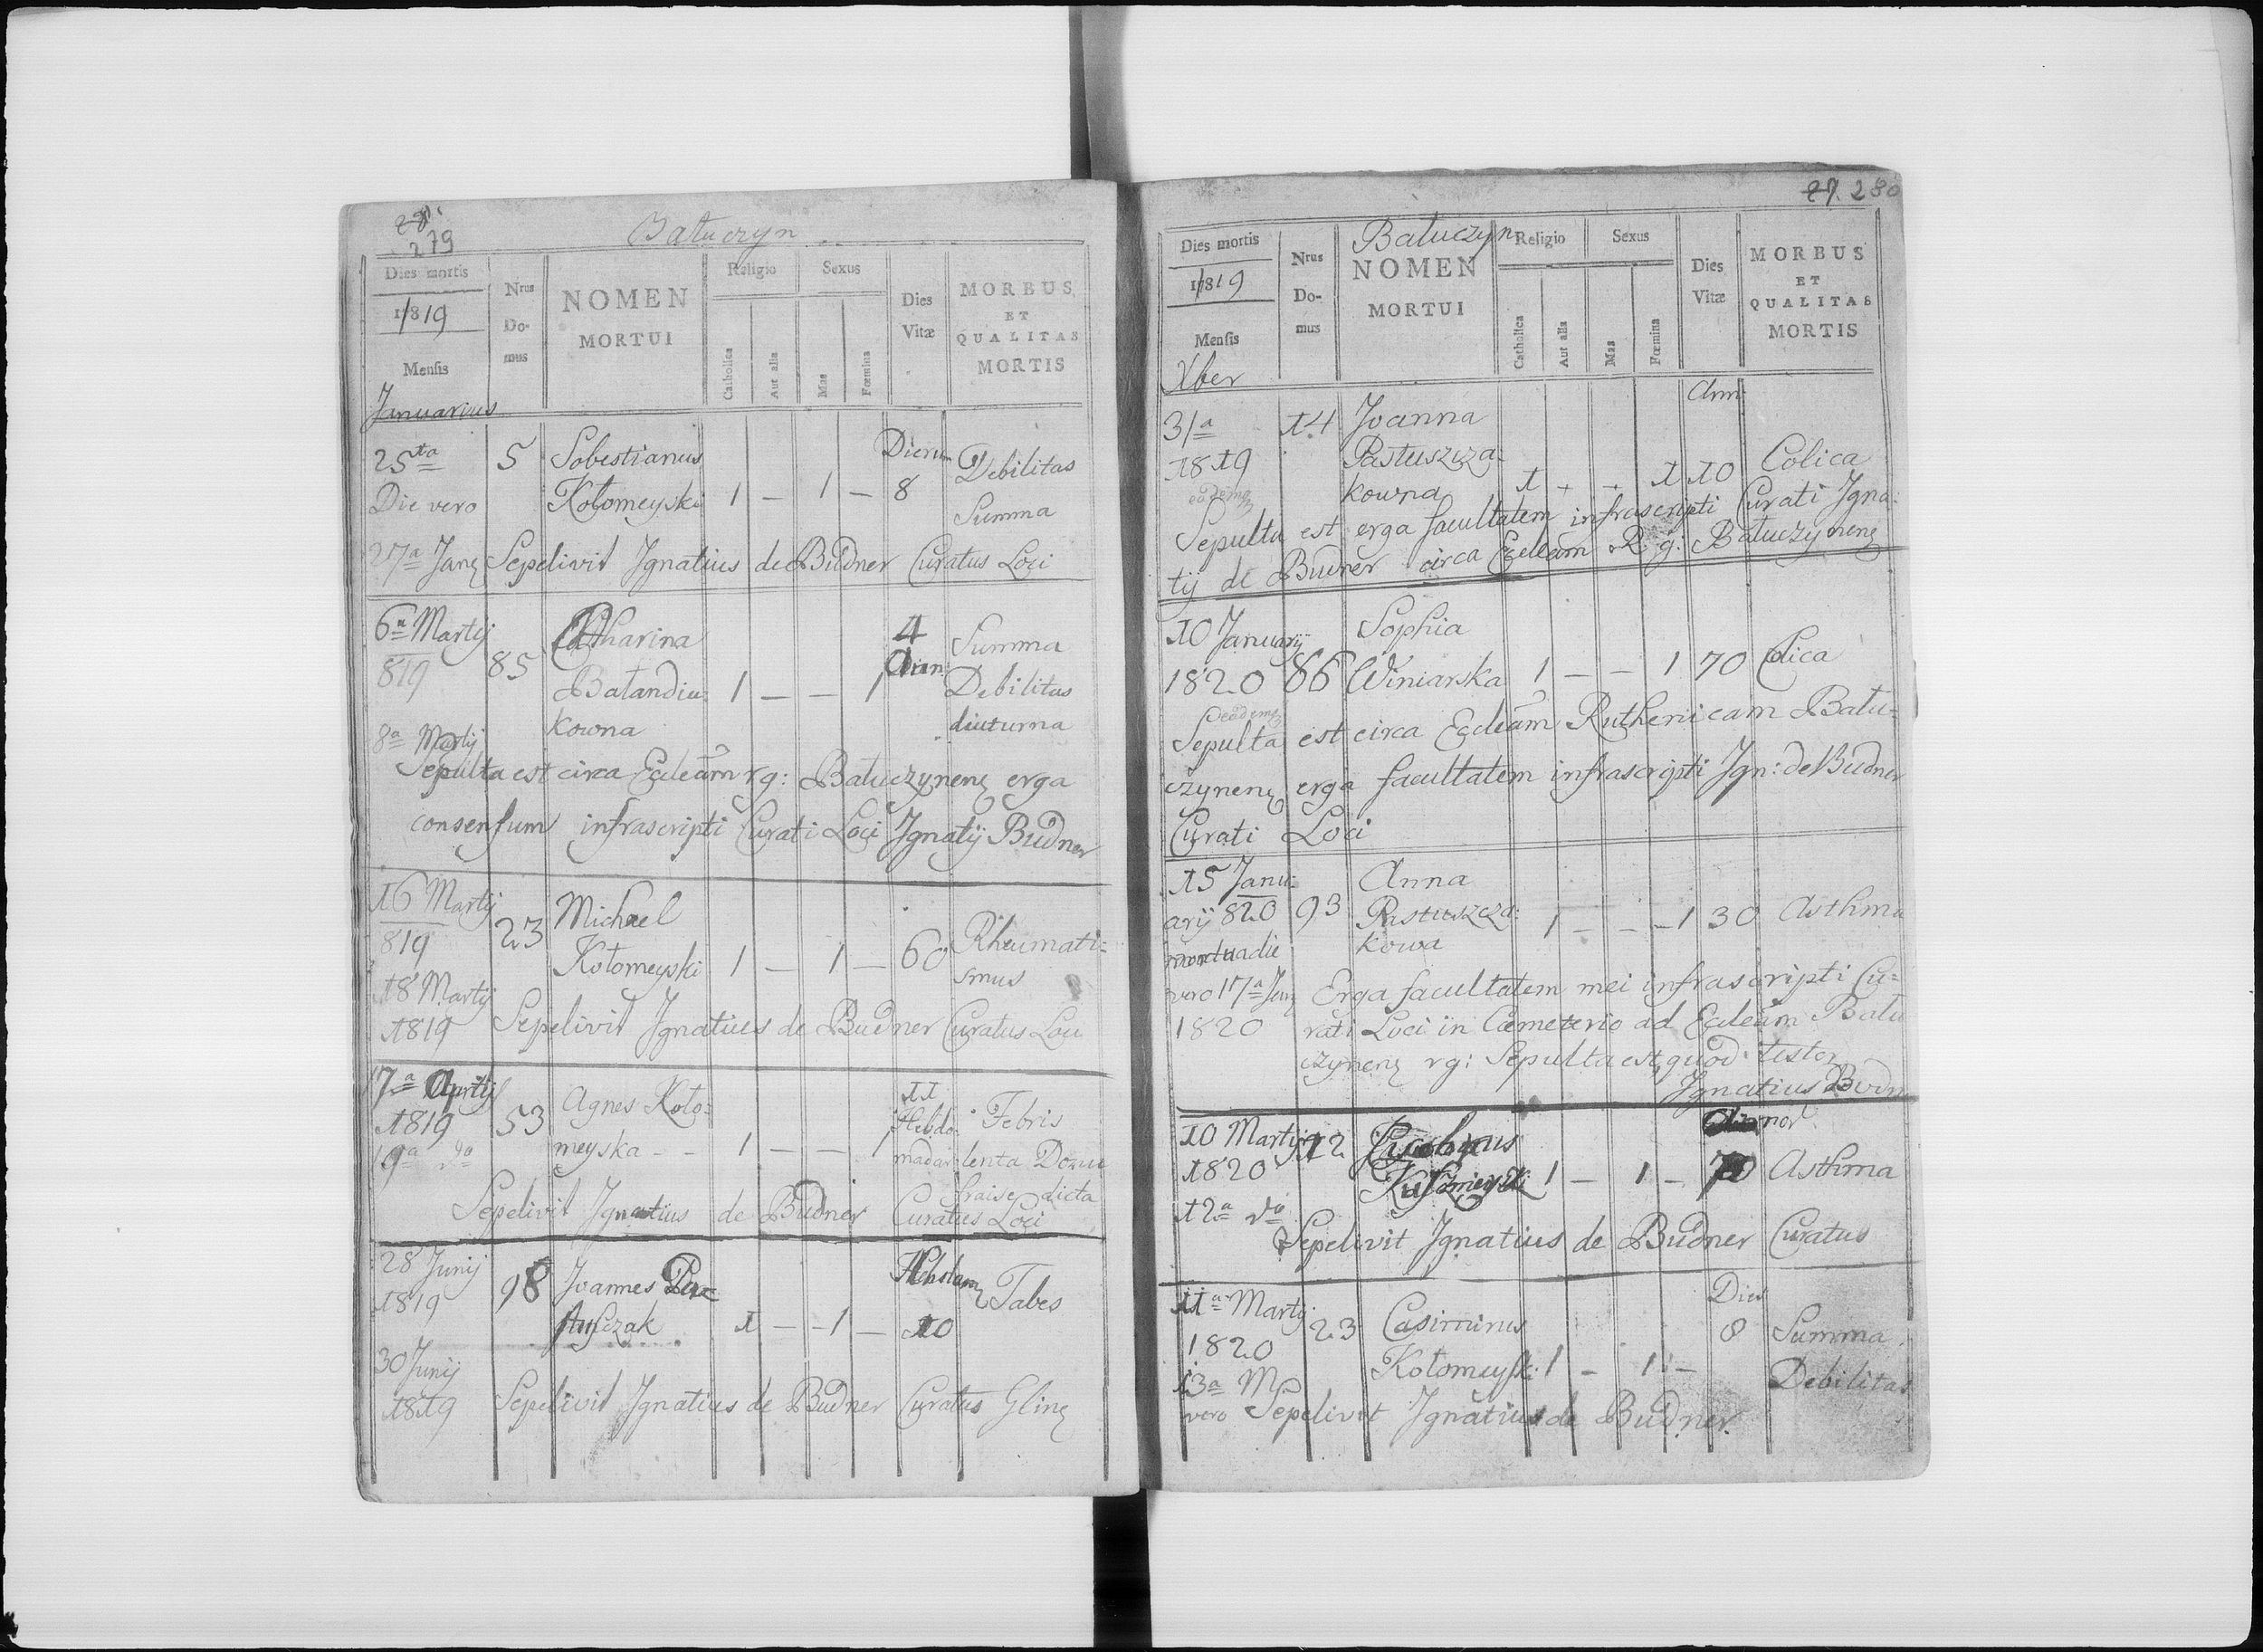 28
279
Batuczyn
Dies mortis
1819
Mensis
Januarius
Nrus
Do-
mus
NOMEN
MORTUI
Religio
Catholica
Aut alia
Sexus
Mas
Fœmina
Dies
Vitæ
MORBUS
ET
QUALITAS
MORTIS
25ta 5 Sobestianus Dierum Debilitas
Die vero Kołomeyski 1 — 1 — 8 Summa
27a Janę Sepelivit Ignatius de Budner Curatus Loci
6a Martij Catharina 4 Summa
819 85 Bałandiu: 1 — — 1 Debilitas
kowna diuturna
8a Martij
Sepulta est circa Eccleãm rg: Batuczynenę erga
consensum infrascripti Curati Loci Ignatij Budner
16 Martij Michael
819 23 Kołomeyski 1 — 1 — 60 Rheumati=
smus
18 Martij
1819 Sepelivit Ignatius de Budner Curatus Loci
17a Aprilis Agnes Koło= 11
1819 53 meyska - - 1 — — 1 Hebdo: Febris
19a do madar lenta
dicta
Sepelivit Ignatius de Budner Curatus Loci
28 Junij 98 Joannes Tabes
1819 1 — 1 — 10
30 Junij
1819 Sepelivit Ignatius de Budner Curatus Glinę
27. 280
Batuczyn
Dies mortis
1819
Mensis
Xber
Nrus
Do-
mus
NOMEN
MORTUI
Religio
Catholica
Aut alia
Sexus
Mas
Fœmina
Dies
Vitæ
Ann
MORBUS
ET
QUALITAS
MORTIS
31a 14 Joanna
1819 Pastuszcza- Colica
eadem kowna 1 - - 1 10
Sepulta est erga facultatem infrascripti Curati Igna:
tij de Budner circa Eccleãm Rg: Batuczynenę
10 Januarij Sophia
1820 86 Winiarska 1 — — 1 70 Colica
eadem
Sepulta est circa Eccleãm Ruthenicam Batu=
czynenę erga facultatem infrascripti Ign: de Budner
Curati Loci
15 Janu: Anna
arij 820 93 Pastuszcza: 1 — — 1 30 Asthma
mortua die kowa
vero 17a Janę Erga facultatem mei infrascripti Cu=
1820 rati Loci in Cœmeterio ad Eccleãm Batu
czynenę rg: Sepulta est, quod testor
Ignatius Budner
10 Martij 12
1820 1 — 1 — 70 Asthma
12a do
Sepelivit Ignatius de Budner Curatus
11a Martij 23 Casimirus Dies
1820 Kołomeysk: 1 — 1 — 8 Summa
13a M Debilitas
vero Sepelivit Ignatius de Budner